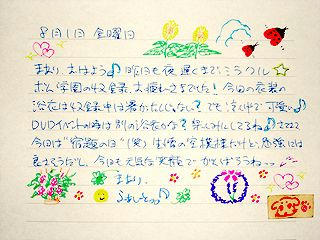 8月1日 金曜日
まあり、おはよう♪ 昨日も夜遅くまでミラクル☆
学園の収録、お疲れさまでした! 今回の衣装の
浴衣は収録中は暑かったんじゃない? でも 可愛い♪
DVDイベントの時は別の浴衣かな? 楽しみにしてるね♪ さてさて
今日は“宿題の日”(笑) は雲の空模様だけど、勉強には
良さそうだし、今日も元気な笑顔で がんばろうねっ
まあり